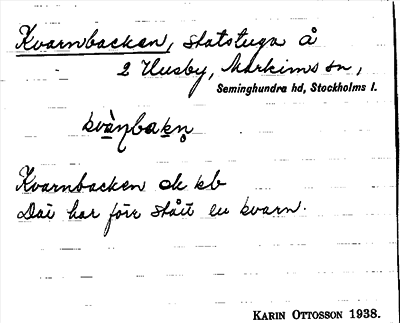 Kvarnbacken, statstuga å
2 Husby, Markims sn,
Seminghundra hd, Stockholms l.
kvà̱ɳbakn̥
Kvarnbacken ek kb
Där har förr stått en kvarn.
KARIN OTTOSSON 1938.